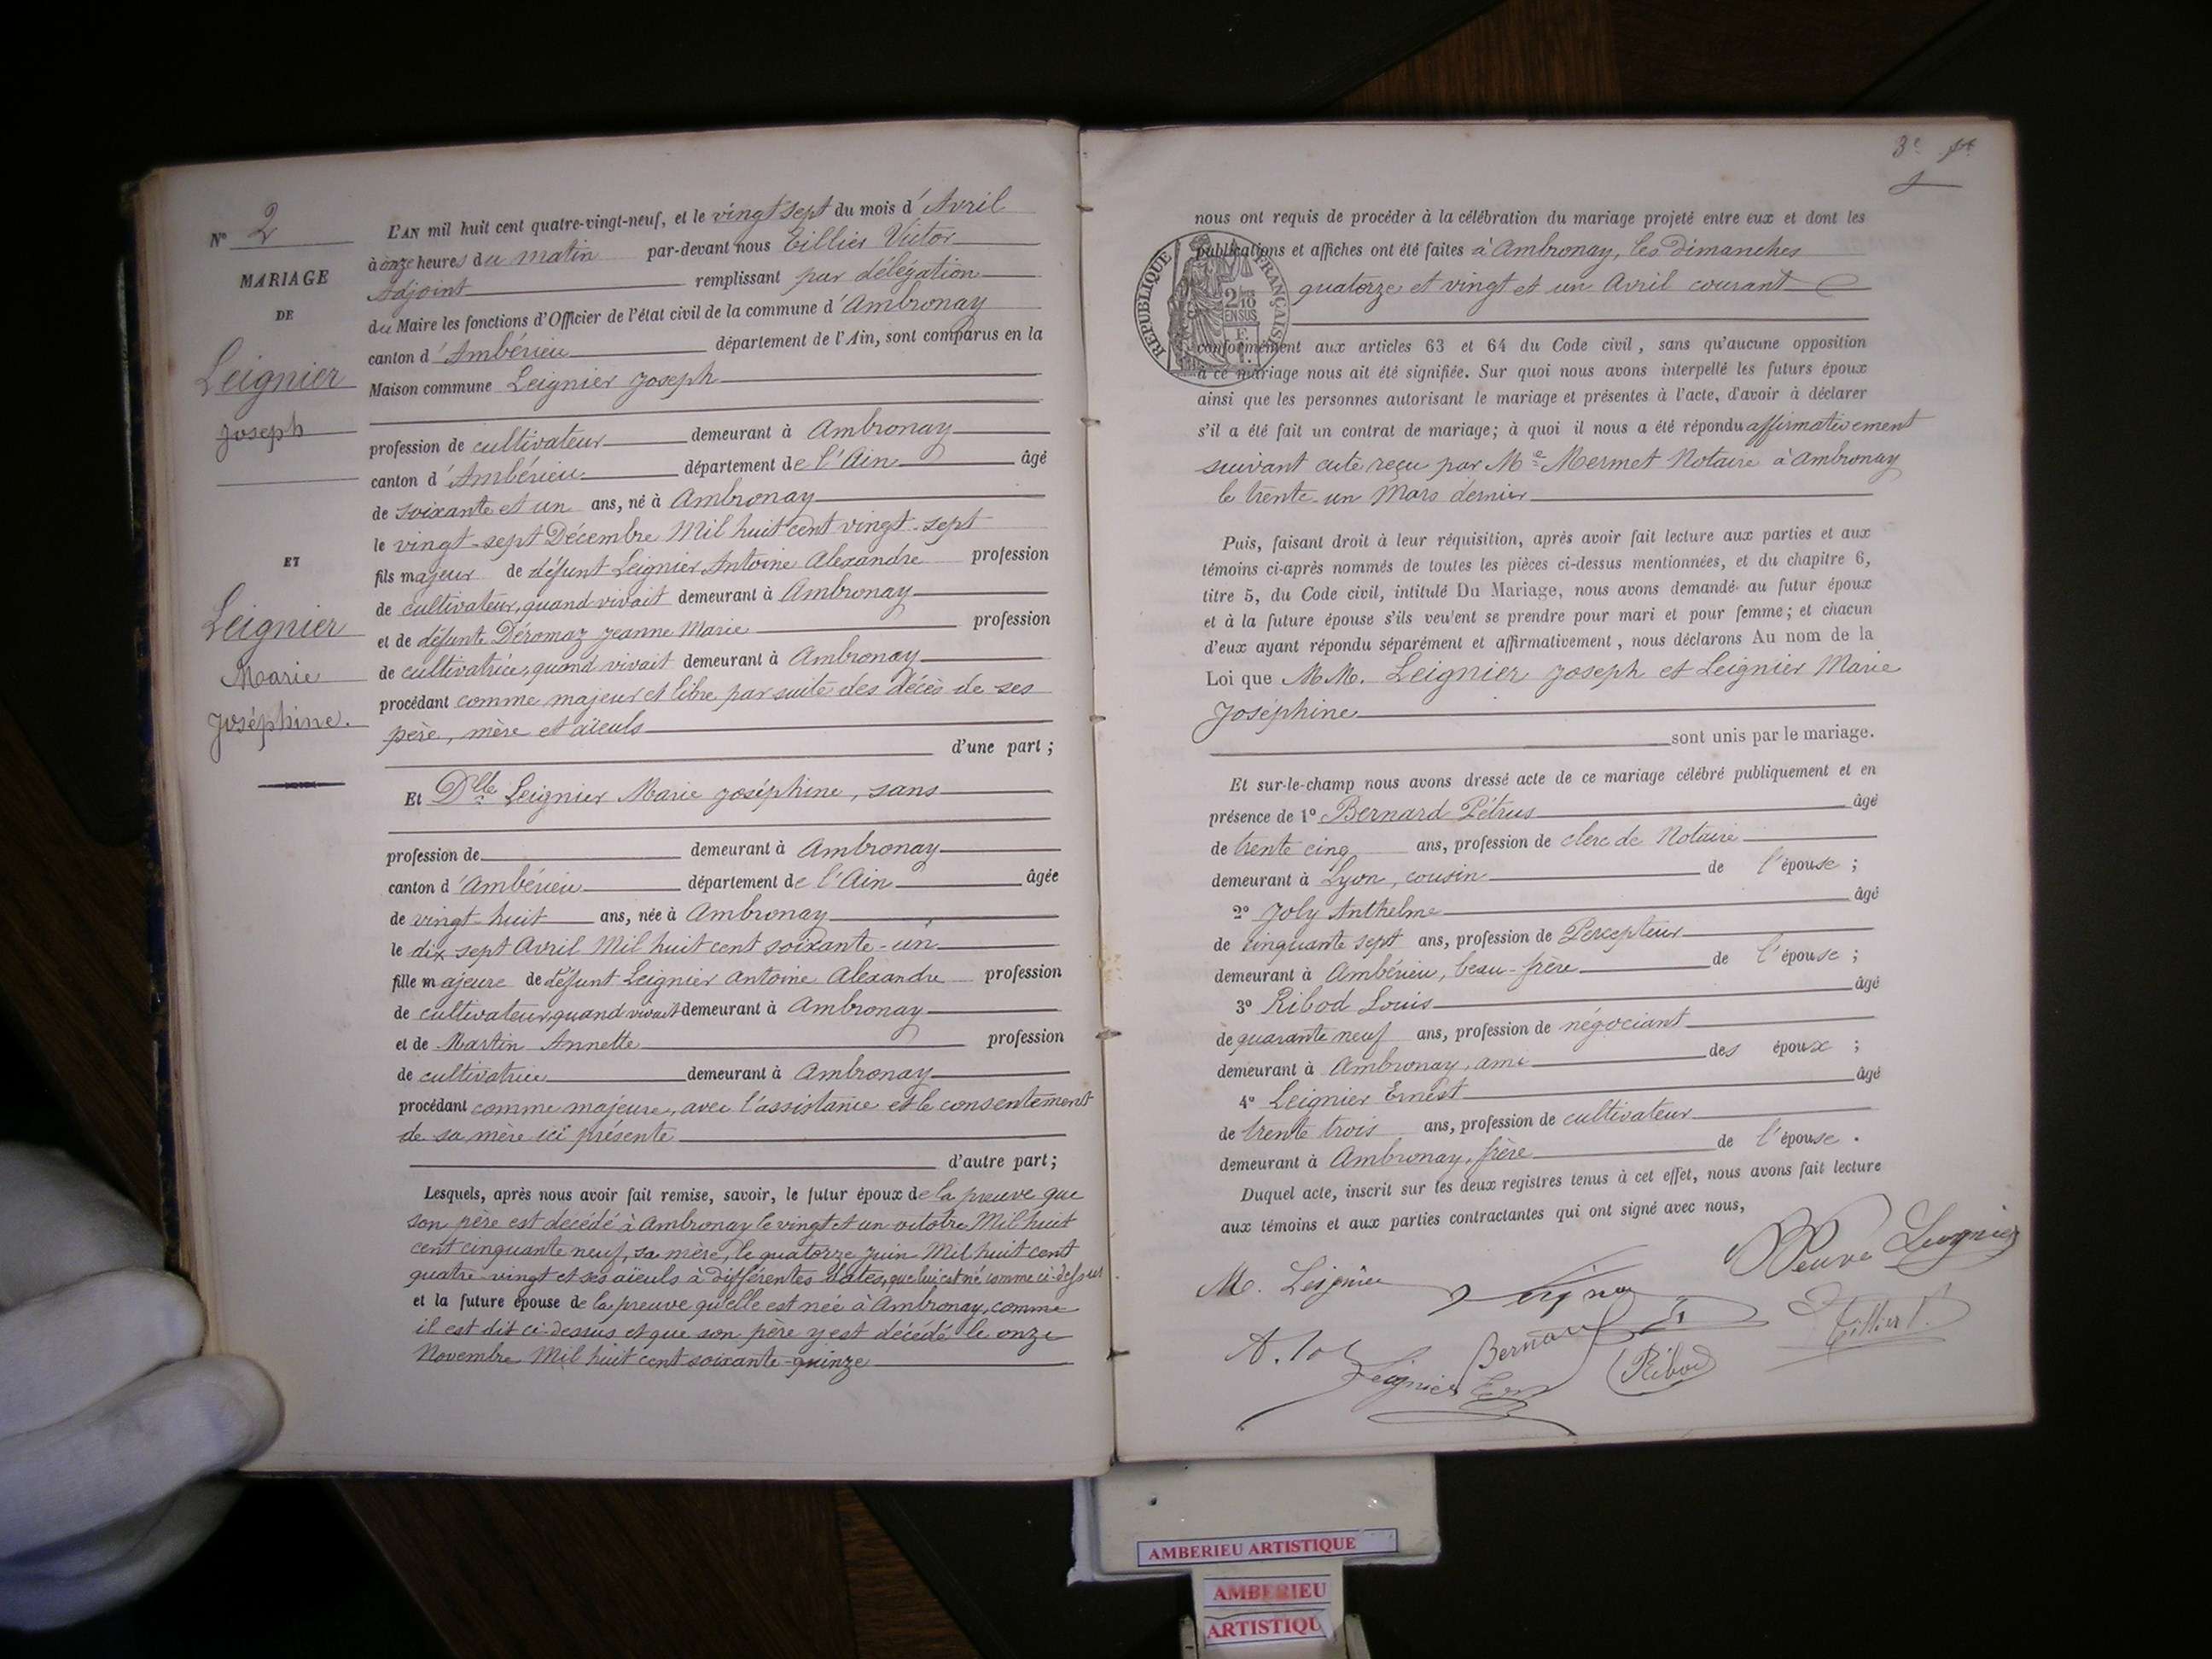 N° 2
MARIAGE
DE
Leignier
Joseph
ET
Leignier
Marie
Joséphine.
L'AN mil huit cent quatre-vingt-neuf, et le vingt sept du mois d'Avril
à onze heures du matin par-devant nous Tillier Victor
Adjoint remplissant par délégation
du Maire les fonctions d'Officier de l'état civil de la commune d'Ambronay
canton d'Ambérieu département de l'Ain, sont comparus en la
Maison commune Leignier Joseph
profession de cultivateur demeurant à Ambronay
canton d'Ambérieu département de l'Ain âgé
de soixante et un ans, né à Ambronay
le vingt-sept Décembre Mil huit cent vingt-sept
fils majeur de défunt Leignier Antoine Alexandre profession
de cultivateur, quand vivait demeurant à Ambronay
et de défunte Déromaz Jeanne Marie profession
de cultivatrice, quand vivait demeurant à Ambronay
procédant comme majeur et libre par suite des décès de ses
père, mère et aïeuls
d'une part ;
Et Dlle Leignier Marie Joséphine, sans
profession de demeurant à Ambronay
canton d'Ambérieu département de l'Ain âgée
de vingt-huit ans, née à Ambronay
le dix sept Avril Mil huit cent soixante-un
fille majeure de défunt Leignier Antoine Alexandre profession
de cultivateur, quand vivait demeurant à Ambronay
et de Martin Annette profession
de cultivatrice demeurant à Ambronay
procédant comme majeure, avec l'assistance et le consentement
de sa mère ici présente
d'autre part ;
Lesquels, après nous avoir fait remise, savoir, le futur époux de la preuve que
son père est décédé à Ambronay le vingt et un octobre Mil huit
cent cinquante neuf, sa mère, le quatorze Juin Mil huit cent
quatre-vingt et ses aïeuls à différentes dates, que lui est né comme ci-dessus
et la future épouse de la preuve qu'elle est née à Ambronay, comme
il est dit ci-dessus et que son père y est décédé le onze
Novembre Mil huit cent soixante-quinze
3e
nous ont requis de procéder à la célébration du mariage projeté entre eux et dont les
publications et affiches ont été faites à Ambronay, les dimanches
quatorze et vingt et un Avril courant
RÉPUBLIQUE FRANÇAISE
2/10 EN SUS
conformément aux articles 63 et 64 du Code civil, sans qu'aucune opposition
à ce mariage nous ait été signifiée. Sur quoi nous avons interpellé les futurs époux
ainsi que les personnes autorisant le mariage et présentes à l'acte, d'avoir à déclarer
s'il a été fait un contrat de mariage ; à quoi il nous a été répondu affirmativement
suivant acte reçu par Me Mermet Notaire à Ambronay
le trente-un Mars dernier
Puis, faisant droit à leur réquisition, après avoir fait lecture aux parties et aux
témoins ci-après nommés de toutes les pièces ci-dessus mentionnées, et du chapitre 6,
titre 5, du Code civil, intitulé Du Mariage, nous avons demandé au futur époux
et à la future épouse s'ils veulent se prendre pour mari et pour femme ; et chacun
d'eux ayant répondu séparément et affirmativement, nous déclarons Au nom de la
Loi que M.M. Leignier Joseph et Leignier Marie
Joséphine
sont unis par le mariage.
Et sur-le-champ nous avons dressé acte de ce mariage célébré publiquement et en
présence de 1° Bernard Pétrus âgé
de trente cinq ans, profession de clerc de Notaire
demeurant à Lyon, cousin de l'épouse ;
2° Joly Anthelme âgé
de cinquante sept ans, profession de Percepteur
demeurant à Ambérieu, beau-frère de l'épouse ;
3° Ribod Louis âgé
de quarante neuf ans, profession de négociant
demeurant à Ambronay, ami des époux ;
4° Leignier Ernest âgé
de trente trois ans, profession de cultivateur
demeurant à Ambronay, frère de l'épouse.
Duquel acte, inscrit sur les deux registres tenus à cet effet, nous avons fait lecture
aux témoins et aux parties contractantes qui ont signé avec nous,
Veuve Leignier
M. Leignier
Tillier V.
Bernard
Ribod
Leignier
AMBERIEU ARTISTIQUE
AMBERIEU
ARTISTIQU